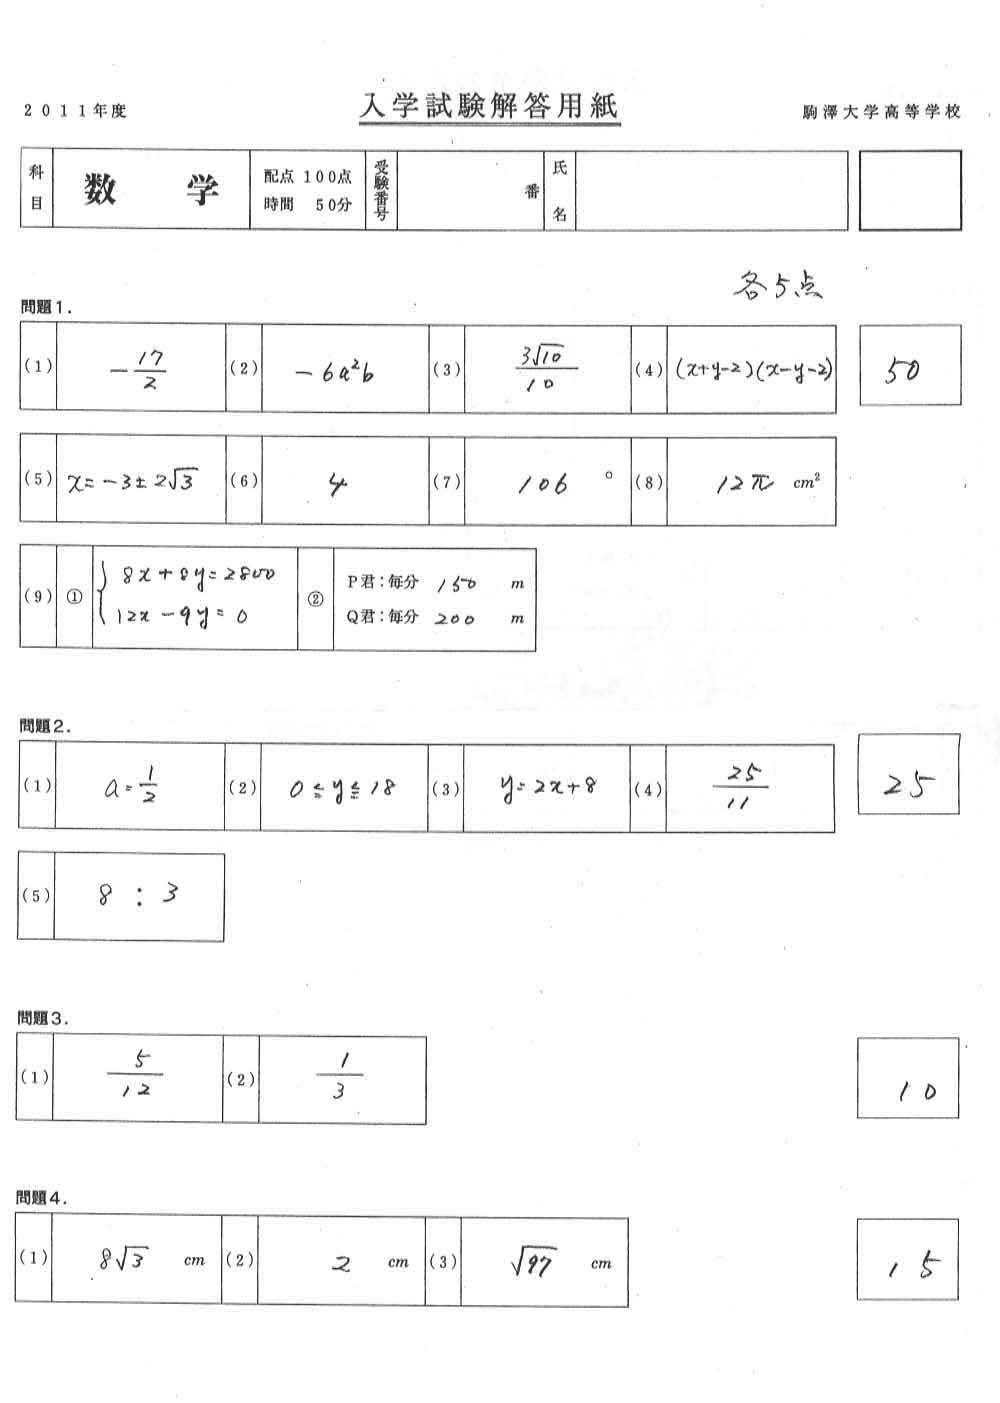 2011年度 入学試験解答用紙 駒澤大学高等学校
科目 数 学 配点 100点 時間 50分 受験番号 番 氏名
各5点
問題1.
(1) -17/2 (2) -6a²b (3) 3√10/10 (4) (x+y-2)(x-y-2) 50
(5) x=-3±2√3 (6) 4 (7) 106° (8) 12π cm²
(9) ① { 8x+8y=2800 ② P君:毎分 150 m
12x-9y=0 Q君:毎分 200 m
問題2.
(1) a=1/2 (2) 0≦y≦18 (3) y=2x+8 (4) 25/11 25
(5) 8 : 3
問題3.
(1) 5/12 (2) 1/3 10
問題4.
(1) 8√3 cm (2) 2 cm (3) √97 cm 15